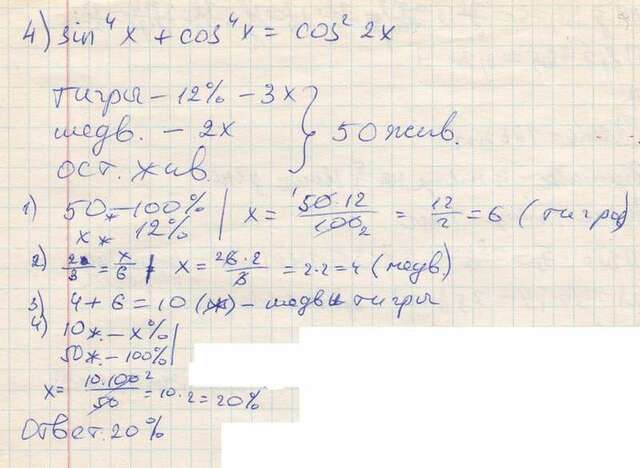 4) sin⁴x + cos⁴x = cos² 2x
тигры – 12% – 3x
медв. – 2x } 50 жив.
ост. жив.
1) 50 – 100% | x = 50·12/100 2 = 12/2 = 6 (тигров)
x ж 12%
2) 2/3 = x/6 x = 2·6 2/3 = 2·2 = 4 (медв)
3) 4 + 6 = 10 (ж) – медв и тигры
4) 10ж. – x%
50ж. – 100%
x = 10·100 2/50 = 10·2 = 20%
Ответ: 20%